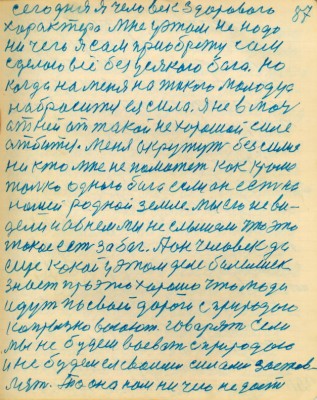 87
сегодня я человек здорового
характера мне у этом не надо
ничего я сам приобрету сам
сделаю всё без усякого бога. но
когда на меня на такого молодца
набросится сила. я не в мочь
от ней от такой не хорошой силе
отбиту. меня окружут без силия
никто мне не поможет как кроме
только одного бога если он есть на
нашей родной земле мы его не ви-
дели и об нем мы не слышали что это
такое есть за бог. А он человек да
еще какой у этом деле большинск
знает про это хорошо что люди
идут по своей дороги с природою
капризно воюют говорят если
мы не будем воевать с природою
и не будем ея своими силами застав-
лять. То она нам ничего не даст